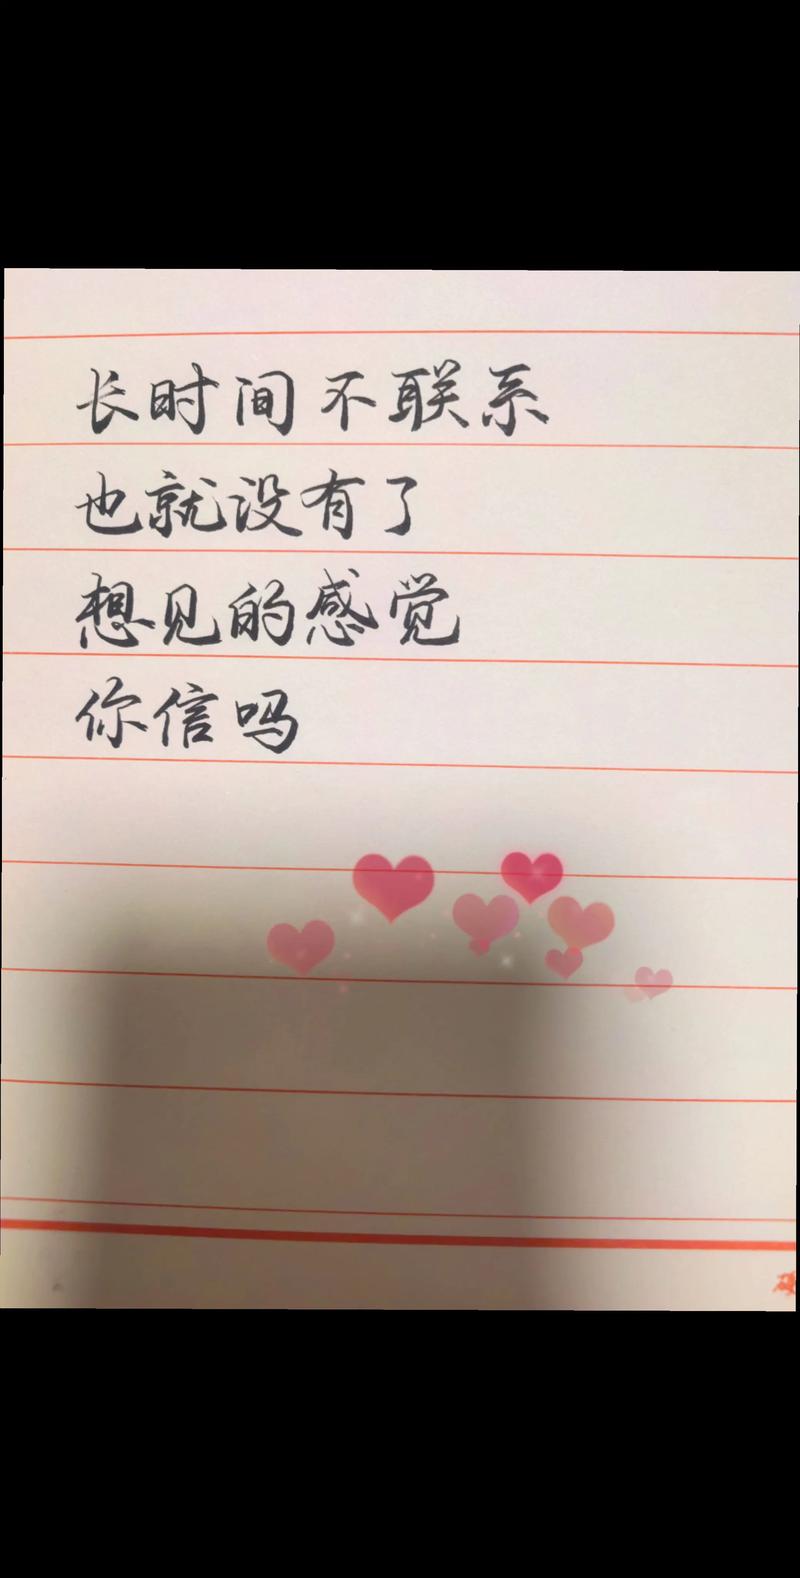 长时间不联系
也就没有了
想见的感觉
你信吗